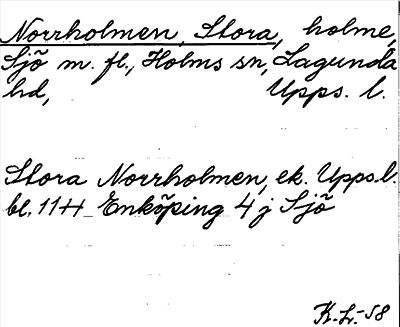 Norrholmen, Stora, holme,
Sjö m. fl., Holms sn, Lagunda
hd, Upps. l.
Stora Norrholmen, ek. Upps.l.
bl. 11H Enköping 4 j Sjö
K.L.-58